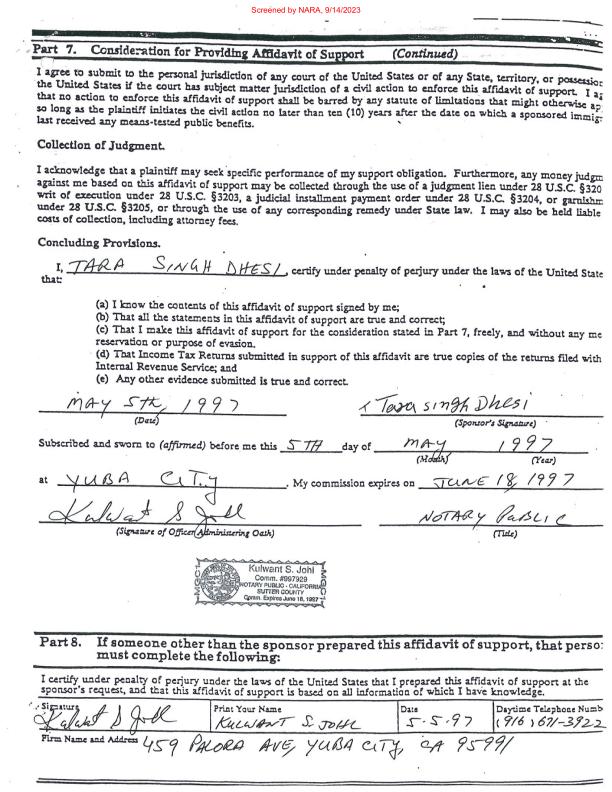 Screened by NARA, 9/14/2023
Part 7. Consideration for Providing Affidavit of Support (Continued)
I agree to submit to the personal jurisdiction of any court of the United States or of any State, territory, or possession
the United States if the court has subject matter jurisdiction of a civil action to enforce this affidavit of support. I ag
that no action to enforce this affidavit of support shall be barred by any statute of limitations that might otherwise ap
so long as the plaintiff initiates the civil action no later than ten (10) years after the date on which a sponsored immig
last received any means-tested public benefits.
Collection of Judgment.
I acknowledge that a plaintiff may seek specific performance of my support obligation. Furthermore, any money judgm
against me based on this affidavit of support may be collected through the use of a judgment lien under 28 U.S.C. §320
writ of execution under 28 U.S.C. §3203, a judicial installment payment order under 28 U.S.C. §3204, or garnishm
under 28 U.S.C. §3205, or through the use of any corresponding remedy under State law. I may also be held liable
costs of collection, including attorney fees.
Concluding Provisions.
I, TARA SINGH DHESI, certify under penalty of perjury under the laws of the United State
that:
(a) I know the contents of this affidavit of support signed by me;
(b) That all the statements in this affidavit of support are true and correct;
(c) That I make this affidavit of support for the consideration stated in Part 7, freely, and without any me
reservation or purpose of evasion.
(d) That Income Tax Returns submitted in support of this affidavit are true copies of the returns filed with
Internal Revenue Service; and
(e) Any other evidence submitted is true and correct.
MAY 5th, 1997 x Tara singh Dhesi
(Date) (Sponsor's Signature)
Subscribed and sworn to (affirmed) before me this 5TH day of MAY 1997
(Month) (Year)
at YUBA CITY. My commission expires on JUNE 18, 1997
Kulwat S Johl NOTARY PUBLIC
(Signature of Officer Administering Oath) (Title)
Kulwant S. Johl
Comm. #997929
NOTARY PUBLIC - CALIFORNIA
SUTTER COUNTY
Comm. Expires June 18, 1997
Part 8. If someone other than the sponsor prepared this affidavit of support, that perso
must complete the following:
I certify under penalty of perjury under the laws of the United States that I prepared this affidavit of support at the
sponsor's request, and that this affidavit of support is based on all information of which I have knowledge.
Signature Print Your Name Date Daytime Telephone Numb
Kulwat S Johl KULWANT S. JOHL 5.5.97 (916) 671-3922
Firm Name and Address 459 PALORA AVE, YUBA CITY, CA 95991